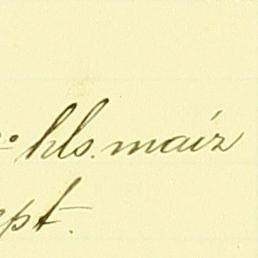 hls. maiz
pt.